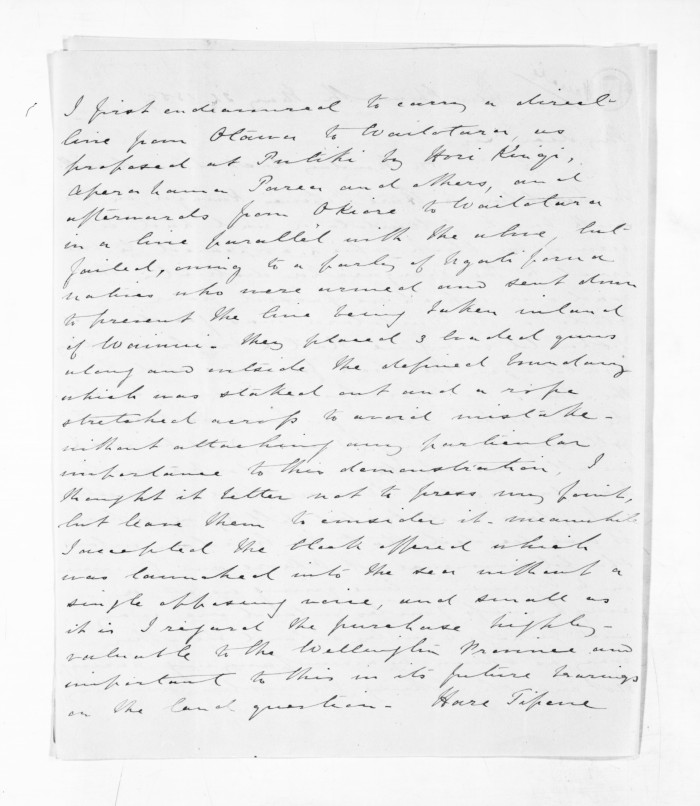 I first endeavoured to carry a direct
line from Otauto to Waitotara, as
proposed at Putiki by Hori Kingi,
Aperahama Parea and others, and
afterwards from Okiore to Waitotara
in a line parallel with the above, but
failed, owing to a party of Ngati
natives who were armed and sent down
to prevent the line being taken inland
of Wainui. They placed 3 loaded guns
along and outside the defined boundary
which was staked out and a rope
stretched across to avoid mistake –
without attaching any particular
importance to this demonstration, I
thought it better not to press my point,
but leave them to consider it. meanwhile
I accepted the block offered which
was launched into the sea without a
single opposing voice, and small as
it is I regard the purchase highly
valuable to the Wellington Province and
important to this in its future bearings
on the land question – Hare Tipene